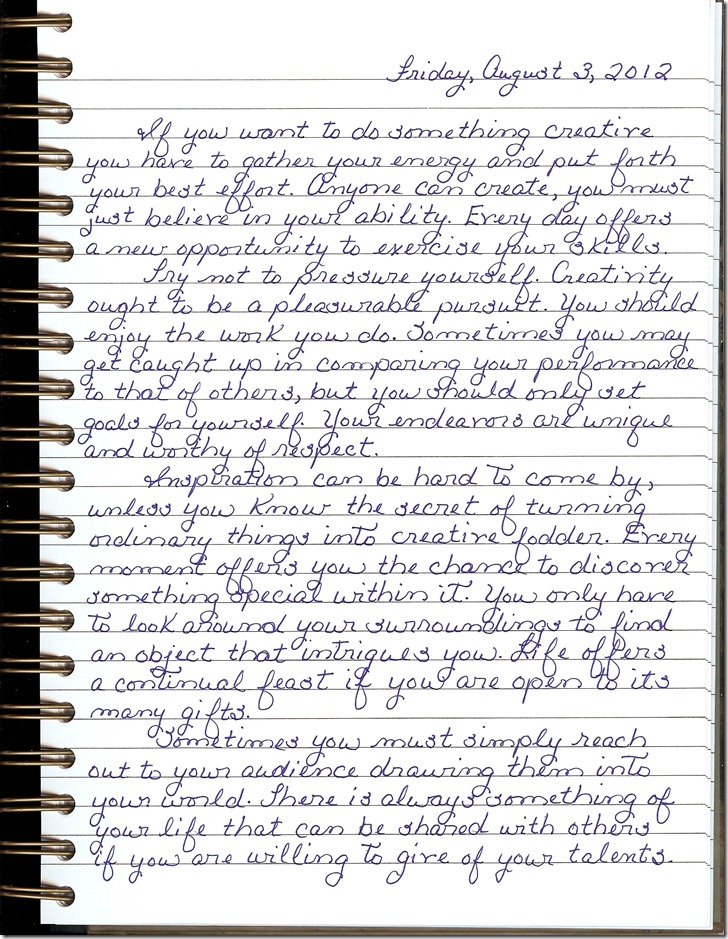 Friday, August 3, 2012
If you want to do something creative
you have to gather your energy and put forth
your best effort. Anyone can create, you must
just believe in your ability. Every day offers
a new opportunity to exercise your skills.
Try not to pressure yourself. Creativity
ought to be a pleasurable pursuit. You should
enjoy the work you do. Sometimes you may
get caught up in comparing your performance
to that of others, but you should only set
goals for yourself. Your endeavors are unique
and worthy of respect.
Inspiration can be hard to come by,
unless you know the secret of turning
ordinary things into creative fodder. Every
moment offers you the chance to discover
something special within it. You only have
to look around your surroundings to find
an object that intrigues you. Life offers
a continual feast if you are open to its
many gifts.
Sometimes you must simply reach
out to your audience drawing them into
your world. There is always something of
your life that can be shared with others
if you are willing to give of your talents.